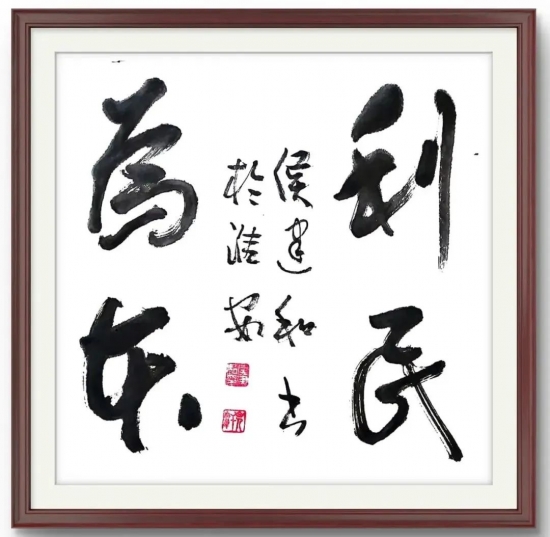 利民
為本
侯建和书
於淮安